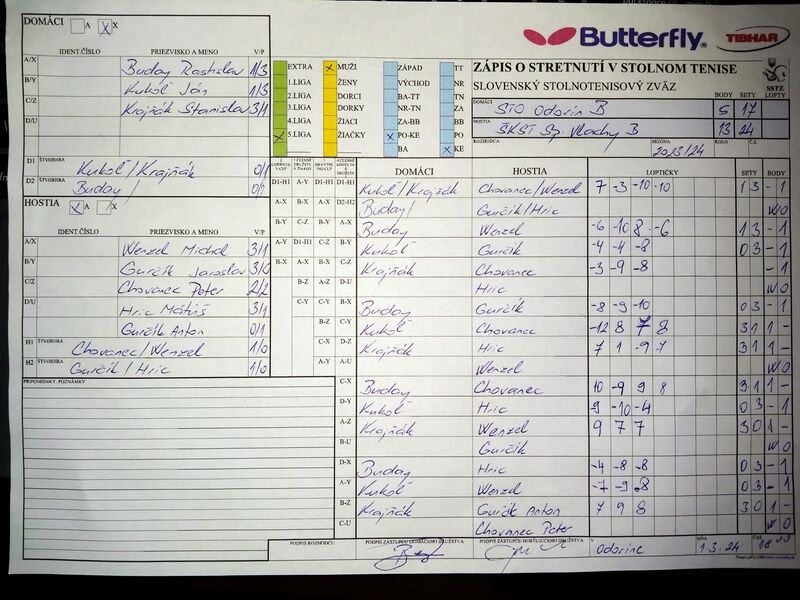 DOMÁCI A X
IDENT.ČÍSLO PRIEZVISKO A MENO V/P
A/X Buday Rastislav 1/3
B/Y Kukoľ Ján 1/3
C/Z Krajňák Stanislav 3/1
D/U
D1 ŠTVORHRA Kukoľ/Krajňák 0/1
D2 ŠTVORHRA Buday/ 0/1
HOSTIA A X
IDENT.ČÍSLO PRIEZVISKO A MENO V/P
A/X Wenzel Michal 3/1
B/Y Gurčík Jaroslav 3/0
C/Z Chovanec Peter 2/2
D/U Hric Matúš 3/1
Gurčík Anton 0/1
H1 ŠTVORHRA Chovanec/Wenzel 1/0
H2 ŠTVORHRA Gurčík/Hric 1/0
PRIPOMIENKY, POZNÁMKY
EXTRA MUŽI ZÁPAD TT
1.LIGA ŽENY VÝCHOD NR
2.LIGA DORCI BA-TT TN
3.LIGA DORKY NR-TN ZA
4.LIGA ŽIACI ZA-BB BB
5.LIGA ŽIAČKY PO-KE PO
BA KE
Butterfly TIBHAR
ZÁPIS O STRETNUTÍ V STOLNOM TENISE
SLOVENSKÝ STOLNOTENISOVÝ ZVÄZ SSTZ
BODY SETY LOPTY
DOMÁCI STO Odorín B 5 17
HOSTIA ŠKST Sp. Vlachy B 13 24
ROZHODCA SEZÓNA 2023/24 KOLO Č.Z.
DOMÁCI HOSTIA LOPTIČKY SETY BODY
D1-H1 A-Y D1-H1 D1-H1 Kukoľ/Krajňák Chovanec/Wenzel 7 -3 -10 -10 1 3 - 1
A-X B-X A-X D2-H2 Buday/ Gurčík/Hric WO
B-Y C-Z B-Y A-X Buday Wenzel -6 -10 8 -6 1 3 - 1
A-Y D1-H1 C-Z B-Y Kukoľ Gurčík -4 -4 -8 0 3 - 1
B-X A-X B-X C-Z Krajňák Chovanec -3 -9 -8 - 1
B-Z A-Z D-U Hric WO
C-Y C-Y B-X Buday Gurčík -8 -9 -10 0 3 - 1
B-Z C-Y Kukoľ Chovanec -12 8 7 8 3 1 1 -
C-X D-Z Krajňák Hric 7 1 -9 7 3 1 1 -
A-Y A-U Wenzel WO
C-X Buday Chovanec 10 -9 9 8 3 1 1 -
D-Y Kukoľ Hric 9 -10 -4 0 3 - 1
A-Z Krajňák Wenzel 9 7 7 3 0 1 -
B-U Gurčík WO
D-X Buday Hric -4 -8 -8 0 3 - 1
A-Y Kukoľ Wenzel -7 -9 -8 0 3 - 1
B-Z Krajňák Gurčík Anton 7 9 8 3 0 1 -
C-U Chovanec Peter WO
PODPIS ROZHODCU PODPIS ZÁSTUPCU DOMÁCEHO DRUŽSTVA PODPIS ZÁSTUPCU HOSŤUJÚCEHO DRUŽSTVA V Odoríne DŇA 1.3.24 ČAS